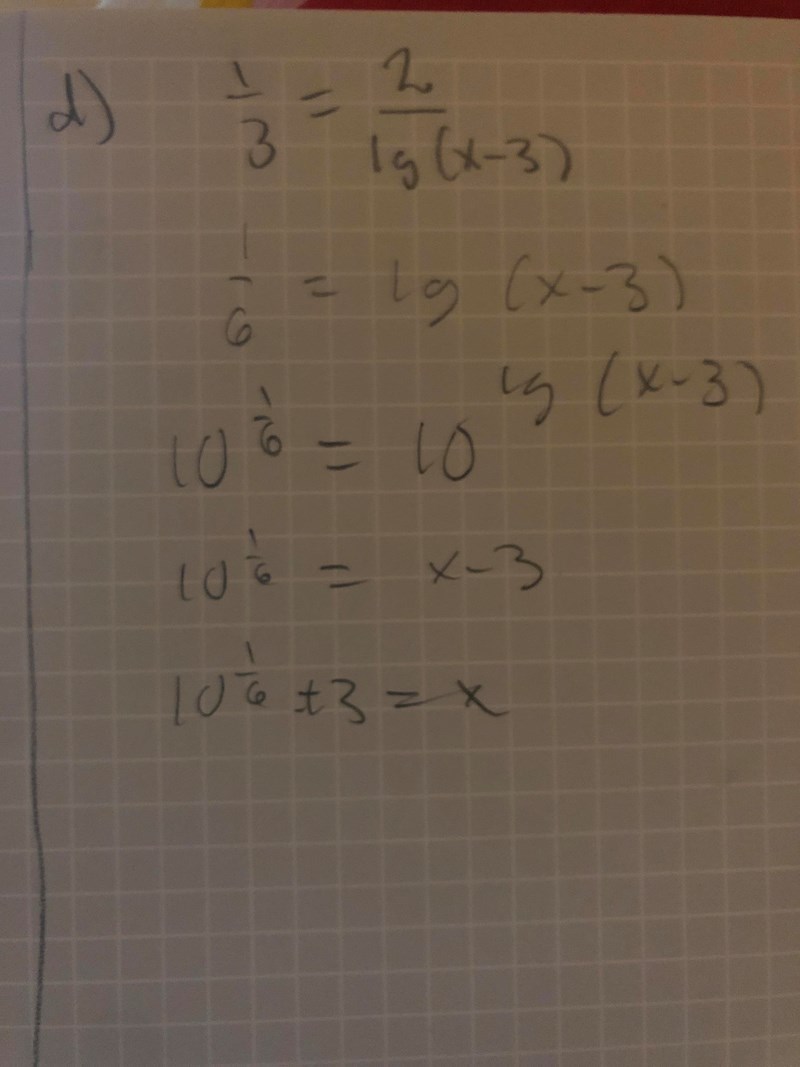 d) 1/3 = 2/lg(x-3)
1/6 = lg (x-3)
10^(1/6) = 10^(lg (x-3))
10^(1/6) = x-3
10^(1/6) +3 = x